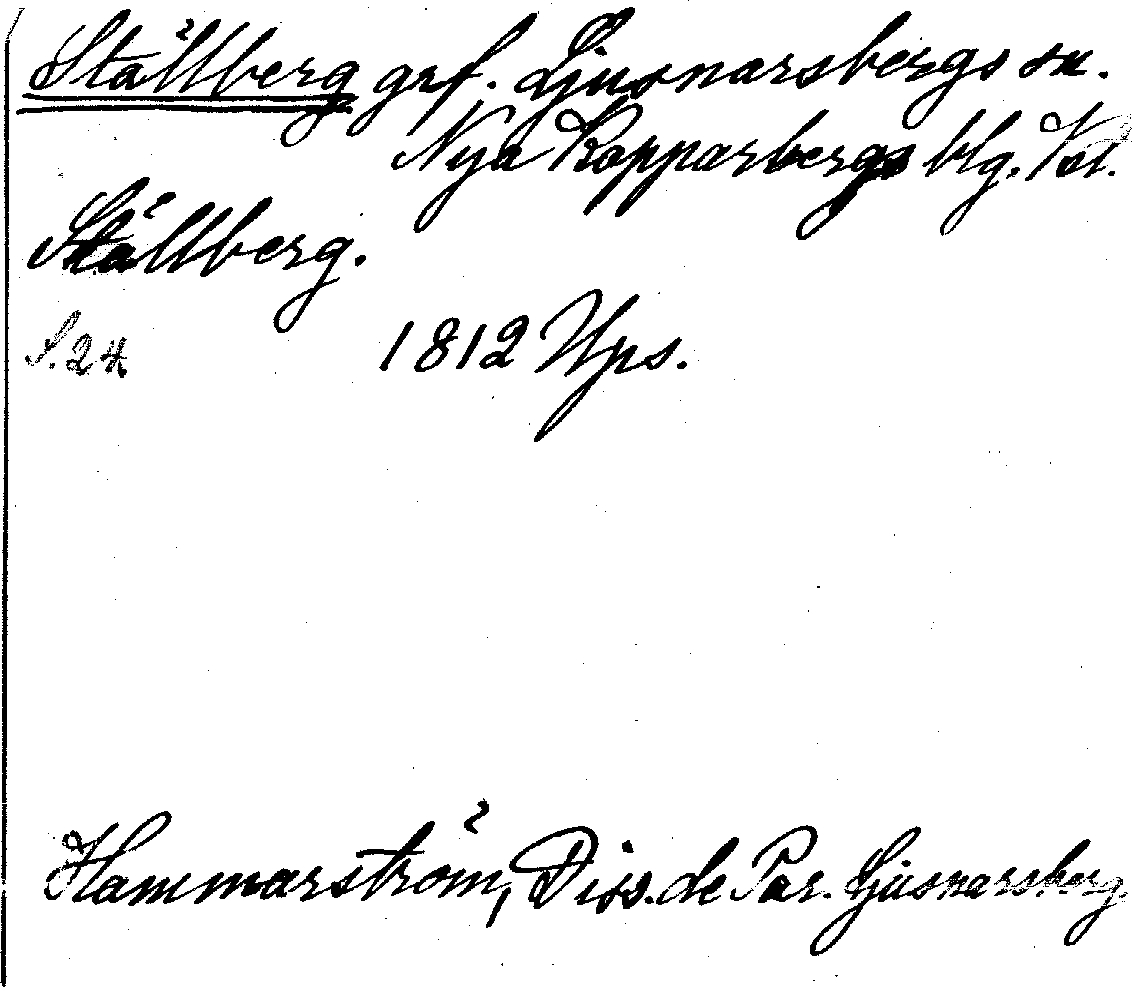 Ställberg grf. Ljusnarsbergs sn.
Nya Kopparbergs blg. Vstl.
Ställberg.
S. 24 1812 Ups.
Hammarström, Diss. de Par. Ljusnarsberg.